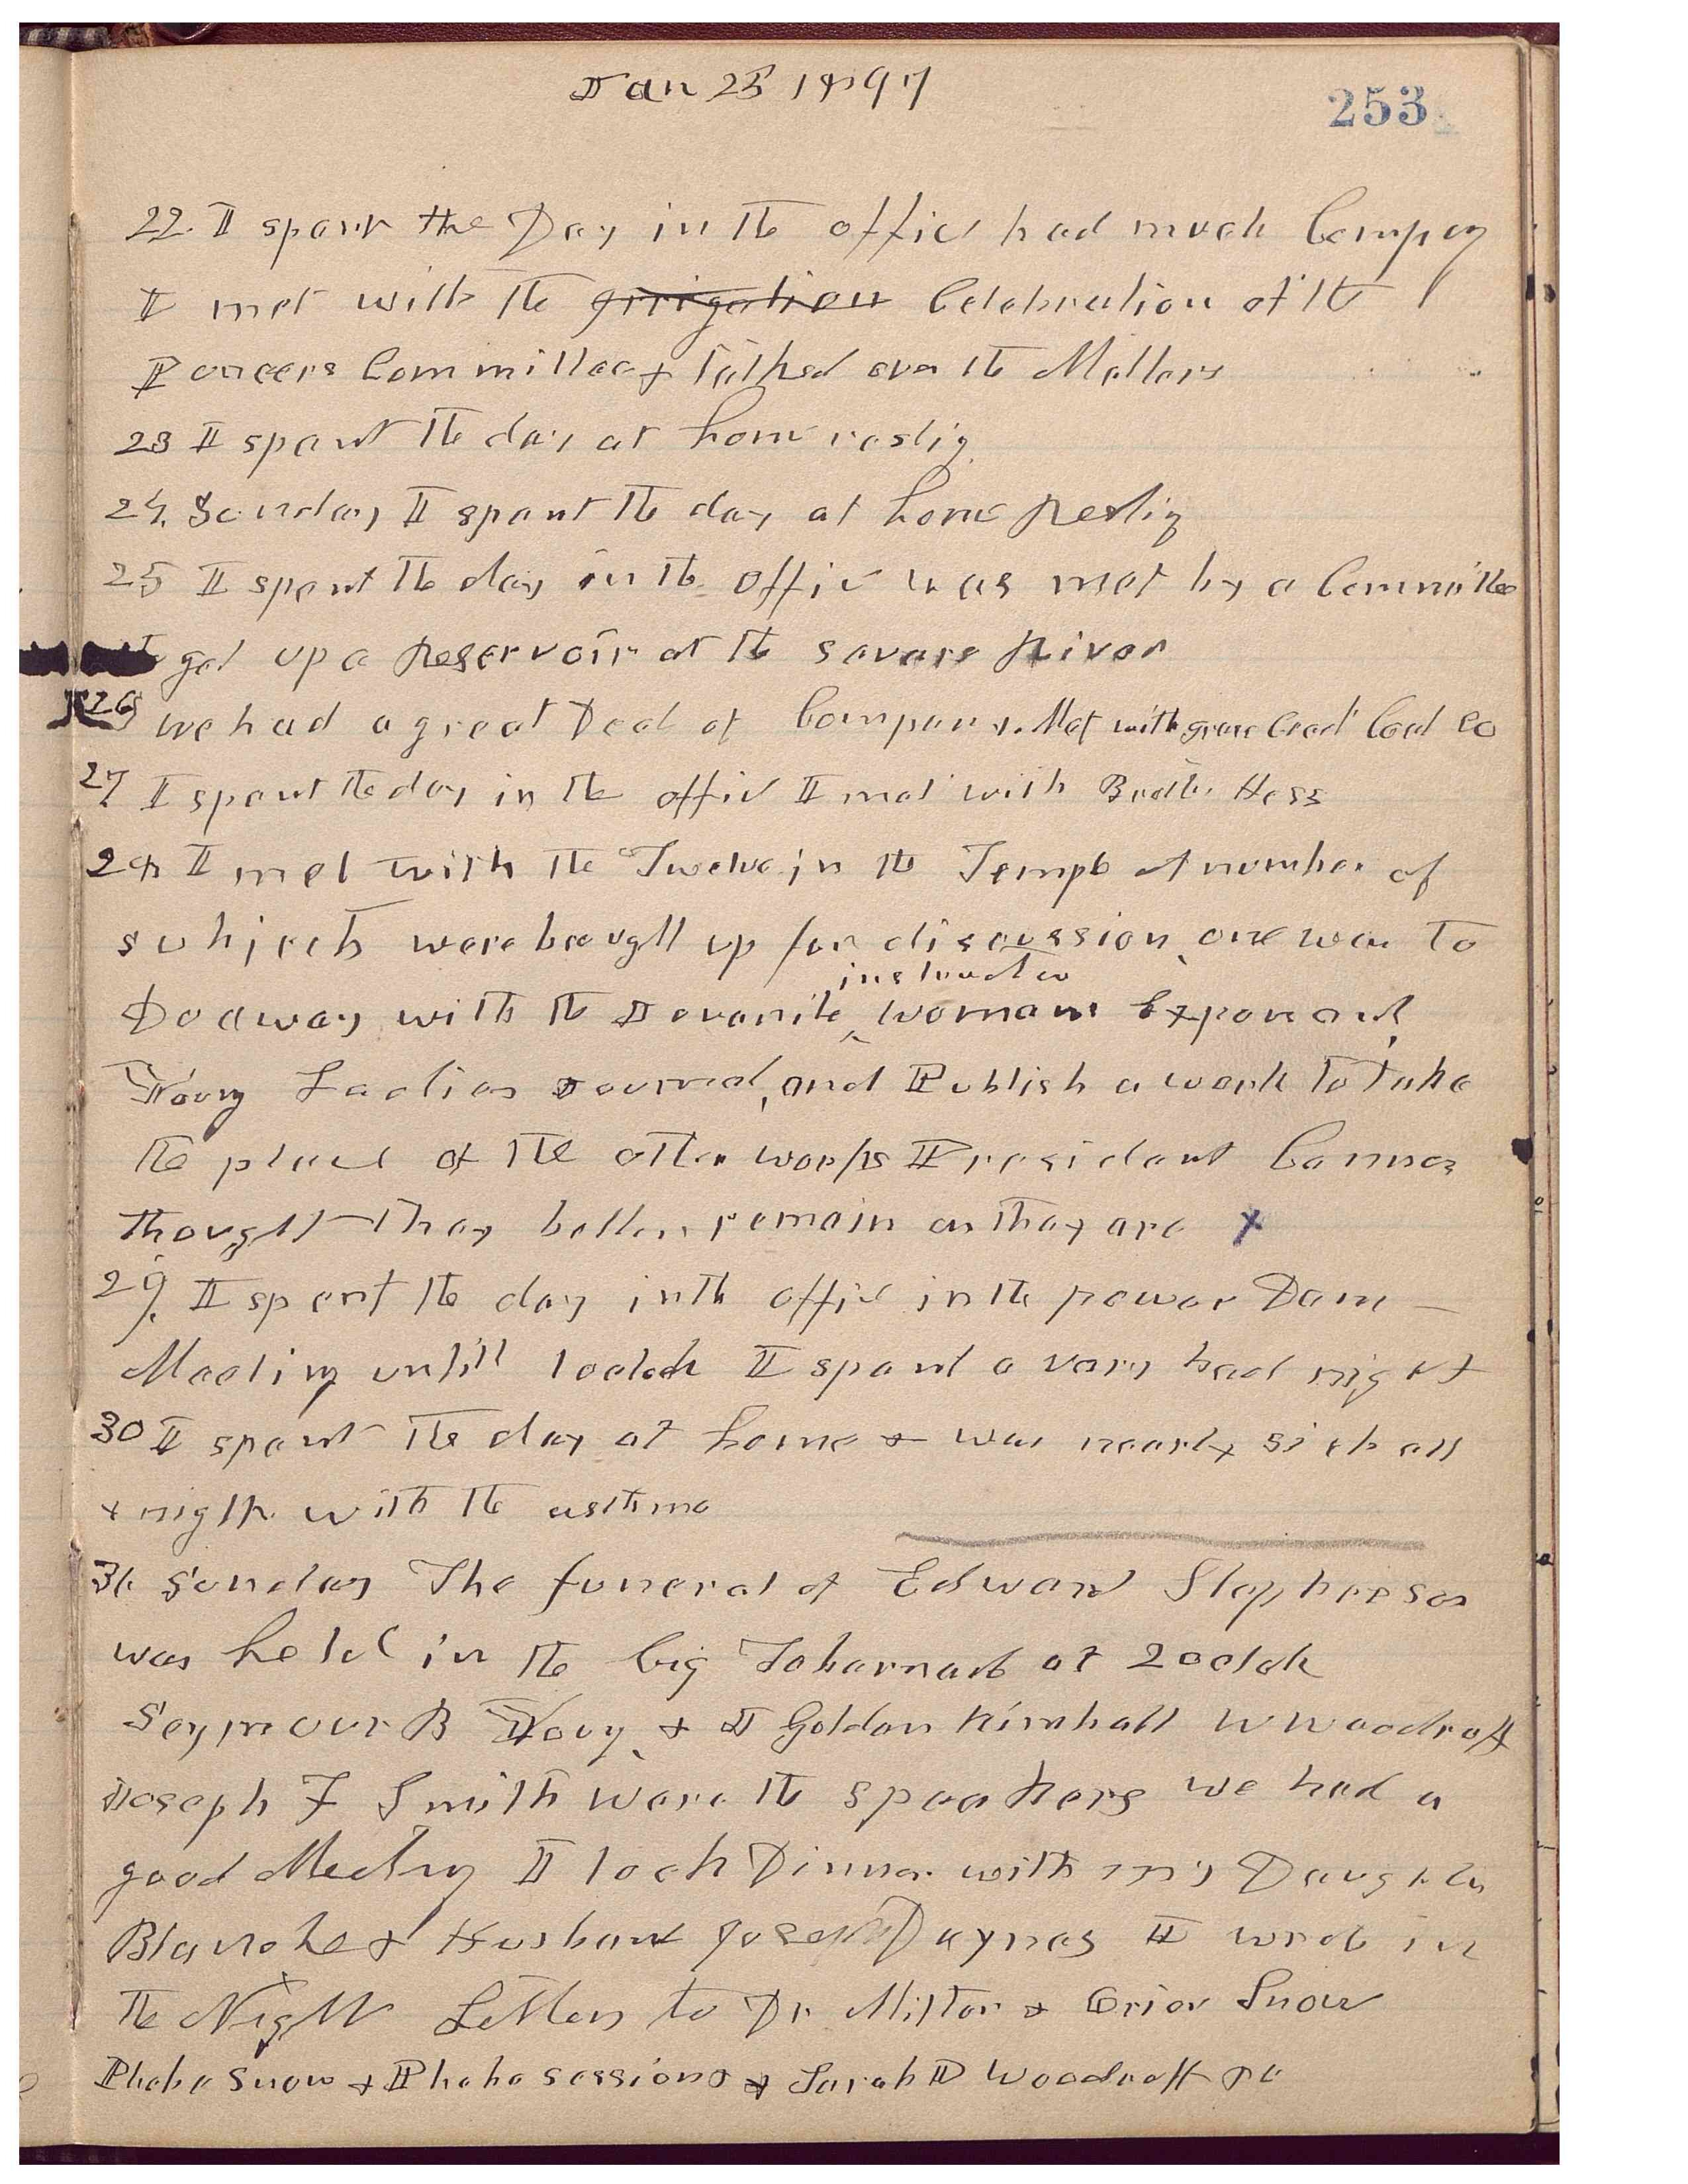 Jan 25 1897
253
22. I spent the Day in the office had much Compay
I met with the irrigation Celebration of the
Poneers Committee & talked over the Matters
23 I spent the day at home restig
24. Sunday I spent the day at home Restig
25 I spent the day in the office was met by a Committee
get up a Reservoir at the savare River
26 we had a great Deal of Company. Met with grass Creek Coal Co
27 I spent the day in the office I met with Brother Hess
28 I met with the Twelve in the Temple A number of
subjects were brought up for discussion, one was To
Do away with the Juvenile instructor Womans Exponent,
Young Ladies Journal, and Publish a work to take
the place of the other works President Cannon
thought They better remain as they are X
29. I spent the day in the office in the power Dam
Meeting untill 1 oclock I spent a very bad night
30 I spent the day at home & was nearly sick all
& night with the asthma
31 Sunday The funeral of Edward Stephenson
was held in the big Tabernacle at 2 oclok
Seymour B Young, & J Golden Kimball W Woodruff
Joseph F Smith were the speakers we had a
good Meeting I took Dinner with my Daughter
Blanche & Husband Joseph Daynes I wrote in
the Night Letters to Dr Milton & Orion Snow
Phebe Snow & Phebe Sessions & Sarah D Woodruff